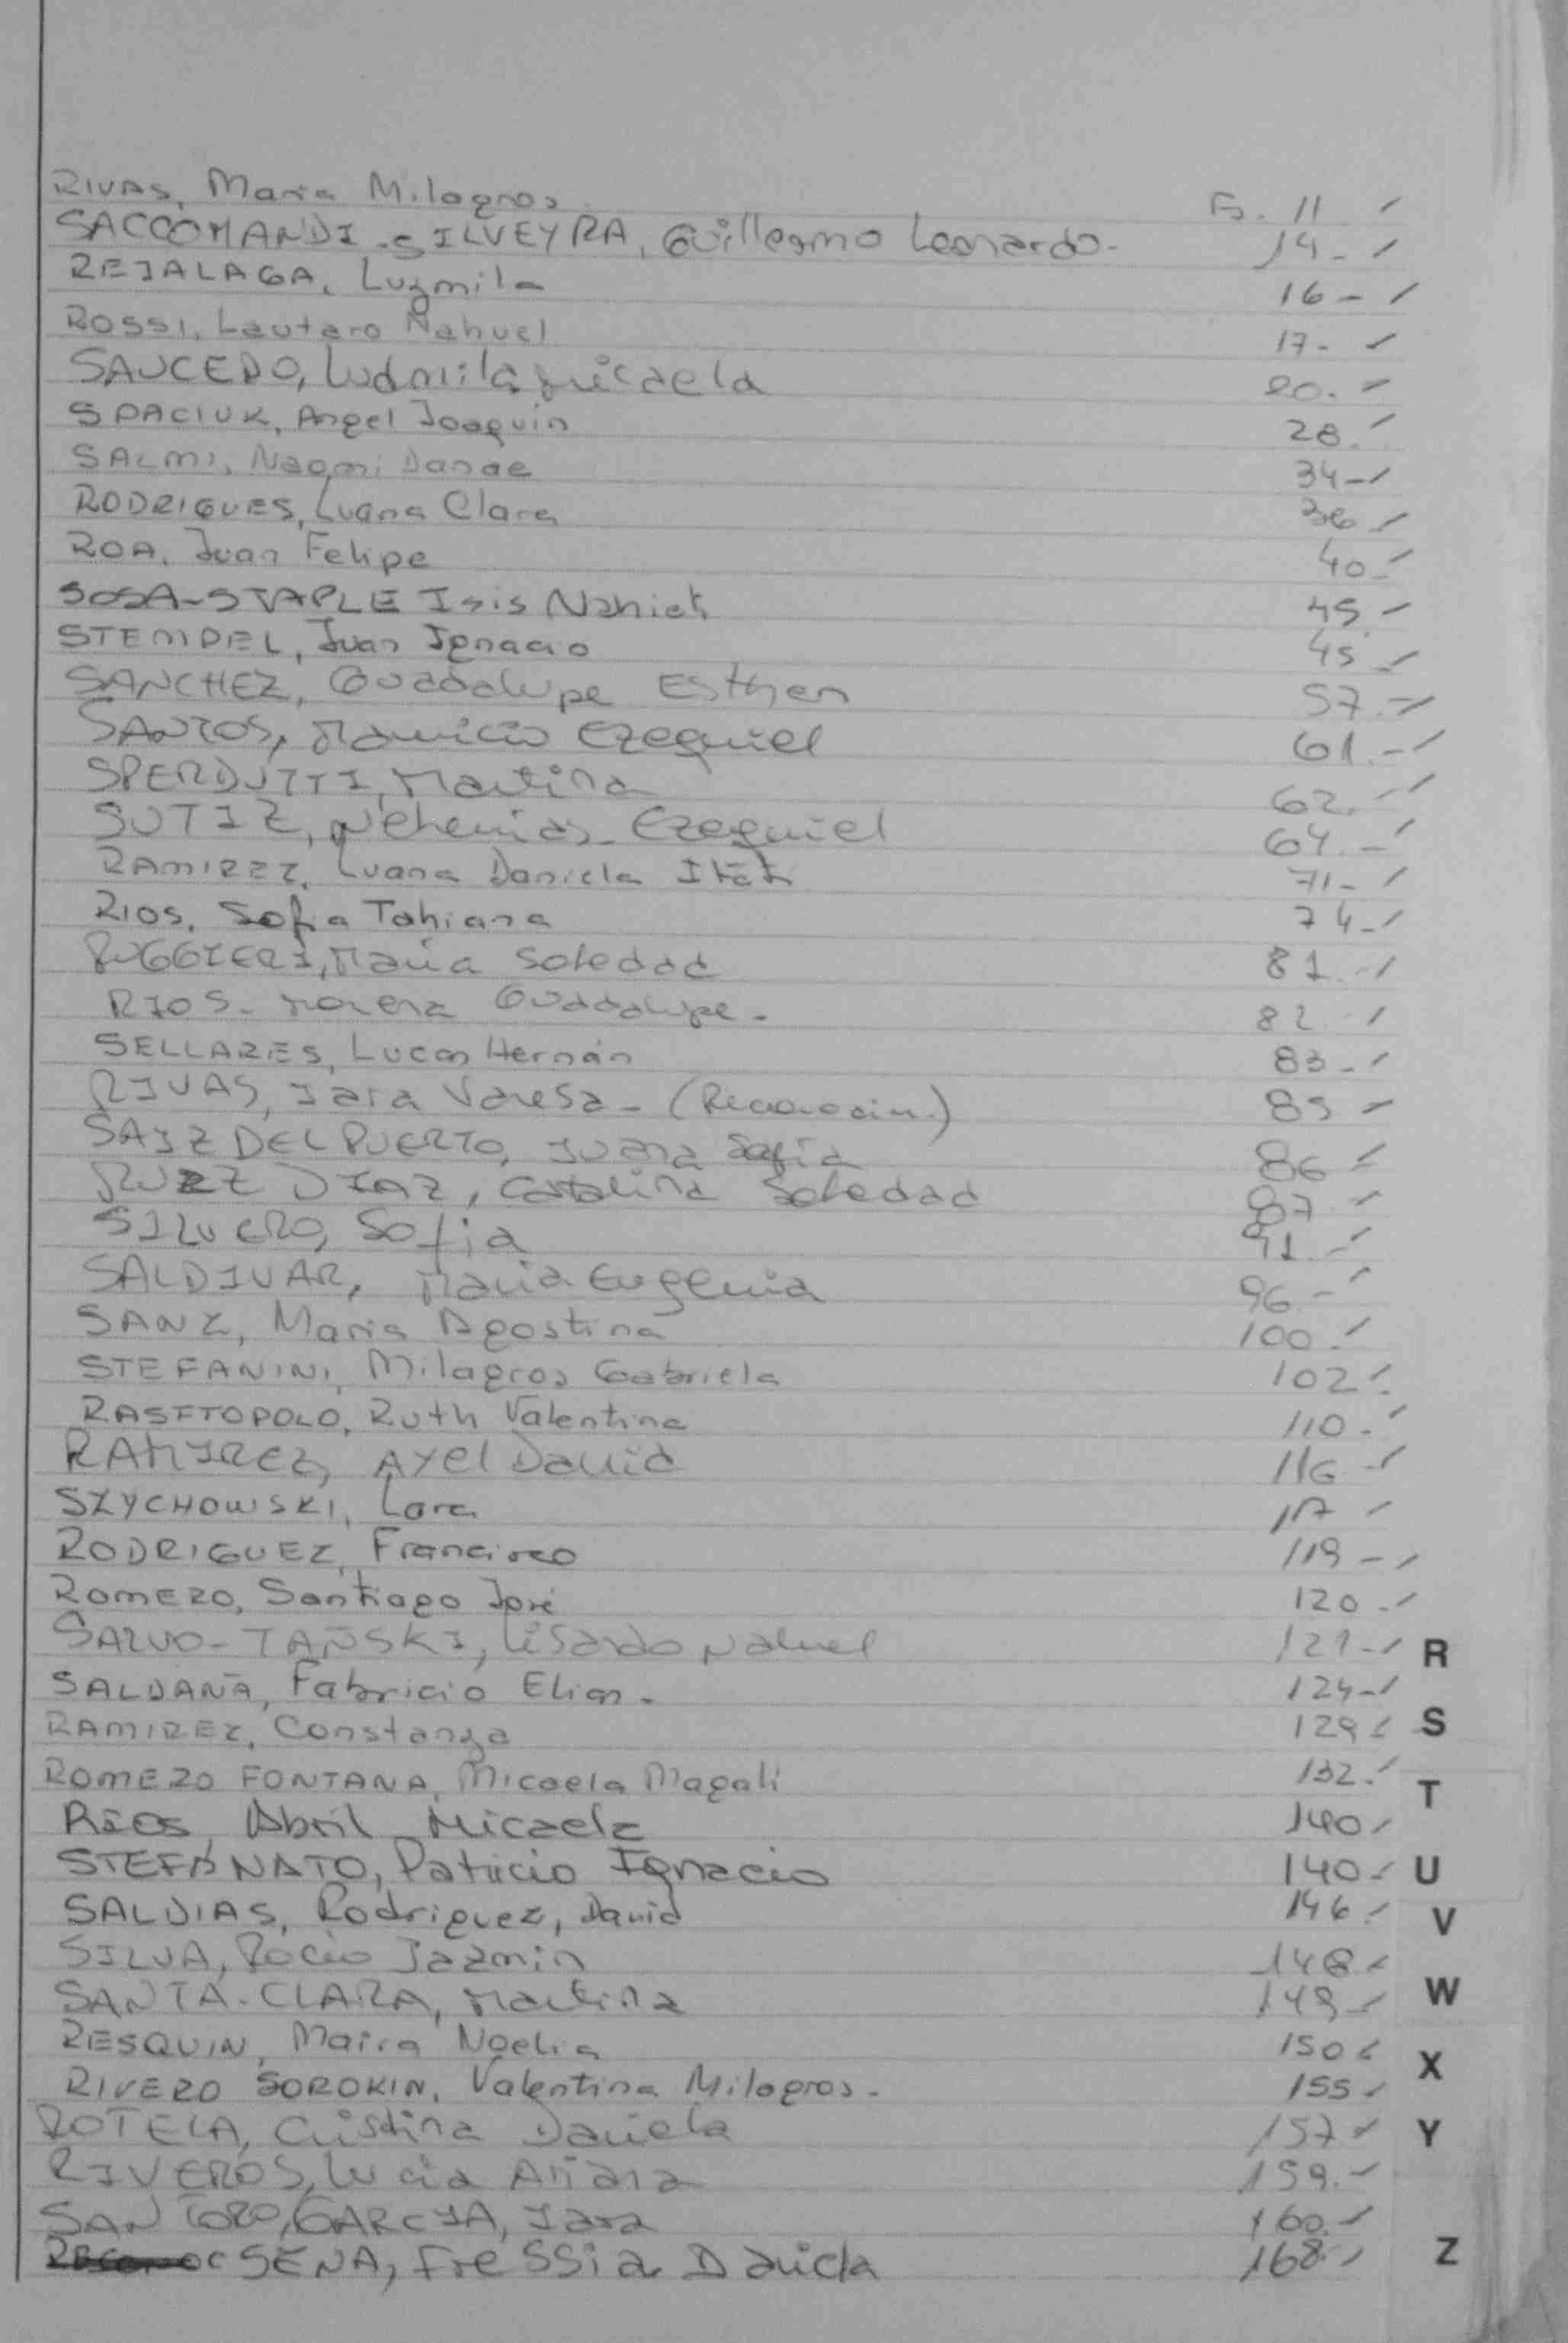 RIVAS, Maria Milagros Fs. 11 -
SACCOMANDI - SILVEYRA, Guillermo Leonardo - 14 - -
REJALAGA, Luzmila 16 - -
ROSSI, Lautaro Nahuel 17 - -
SAUCEDO, Ludmila Micaela 20. -
SPACIUK, Angel Joaquin 28. -
SALMI, Naomi Danae 34 - -
RODRIGUES, Luana Clara 36 -
ROA, Juan Felipe 40 -
SOSA-STAPLE Isis 45 -
STEMPEL, Juan Ignacio 45 -
SANCHEZ, Guadalupe Esther 57. -
SANTOS, Mauricio Ezequiel 61. - -
SPERDUTTI, Martina 62. - -
SUTIZ, Nehemias Ezequiel 64. - -
RAMIREZ, Luana Daniela Itati 71 - -
RIOS, Sofia Tahiana 74 - -
RUGGIERI, Maria Soledad 81. - -
RIOS - Morena Guadalupe - 82 - -
SELLARES, Lucas Hernán 83 - -
RIVAS, Iara Vanesa - (Reconocim.) 85 -
SAIZ DEL PUERTO, Juana Sofia 86 -
RUIZ DIAZ, Catalina Soledad 87. -
SILVERO, Sofia 91. - -
SALDIVAR, Maria Eugenia 96. - -
SANZ, Maria Agostina 100. -
STEFANINI, Milagros Gabriela 102 -
RASFTOPOLO, Ruth Valentina 110. -
RAMIREZ, Axel David 116 - -
SZYCHOWSKI, Lara 117 -
RODRIGUEZ, Francisco 119 - -
ROMERO, Santiago José 120 - -
SALVO - TAÑSKI, Lisardo Nahuel 121 - - R
SALDAÑA, Fabricio Elias - 124 - -
RAMIREZ, Constanza 129 - S
ROMERO FONTANA, Micaela Magali 132. -
T
RIOS, Abril Micaela 140 -
STEFANATO, Patricio Ignacio 140 - U
SALDIAS, Rodriguez, David 146 -
V
SILVA, Rocio Jazmin 148 -
SANTA - CLARA, Martina 149 - W
RESQUIN, Maira Noelia 150 -
X
RIVERO SOROKIN, Valentina Milagros - 155 -
ROTELA, Cristina Daniela 157 - Y
RIVEROS, Lucia Ariana 159. -
SANTORO, GARCIA, Iara 160. -
SENA, Fressia Daniela 168 - Z